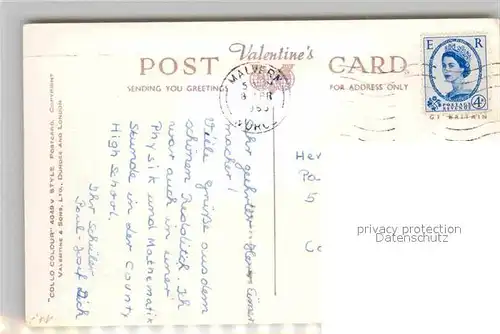 Valentine's
POST CARD
SENDING YOU GREETINGS
FOR ADDRESS ONLY
MALVERN
E R
POSTAGE
4D
GT BRITAIN
"COLLO COLOUR"
STYLE POSTCARD. COPYRIGHT
VALENTINE & SONS, LTD., DUNDEE AND LONDON
Sehr geehrter Herr
macher!
Viele Grüße aus dem
schönen Redditch. Ich
war auch in einer
Physik und Mathematik
Stunde in der County
High School.
Ihr Schüler
Paul-Josef Dich
Her
privacy protection
Datenschutz